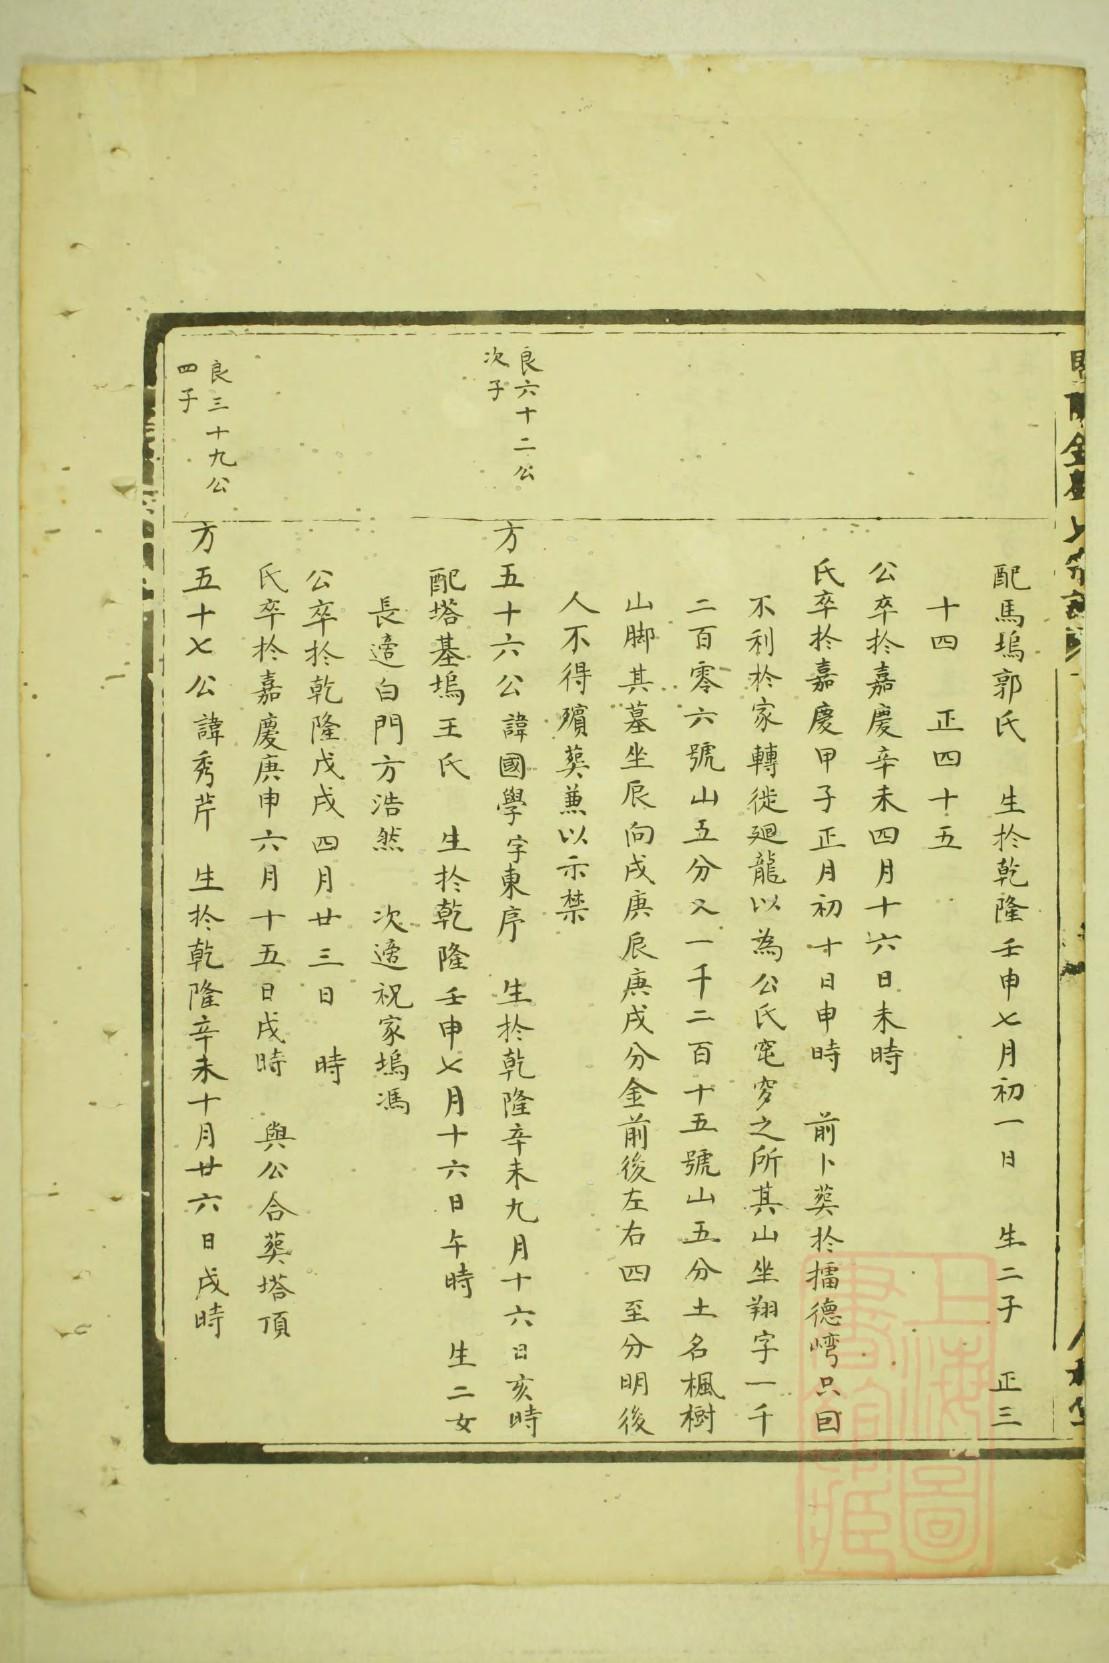 配馬塢郭氏　生於乾隆壬申七月初一日　生二子　正三
十四　正四十五
公卒於嘉慶辛未四月十六日未時
氏卒於嘉慶甲子正月初十日申時　前卜葬於擂德灣只因
不利於家轉徙廻龍以為公氏窀穸之所其山坐翔字一千
二百零六號山五分又一千二百十五號山五分土名楓樹
山脚其墓坐辰向戌庚辰庚戌分金前後左右四至分明後
人不得殯葬兼以示禁
良六十二公
次子
方五十六公諱國學字東序　生於乾隆辛未九月十六日亥時
配塔基塢王氏　生於乾隆壬申七月十六日午時　生二女
長適白門方浩然　次適祝家塢馮
公卒於乾隆戊戌四月廿三日　時
氏卒於嘉慶庚申六月十五日戌時　與公合葬塔頂
良三十九公
四子
方五十七公諱秀芹　生於乾隆辛未十月廿六日戌時
上海圖
書館藏